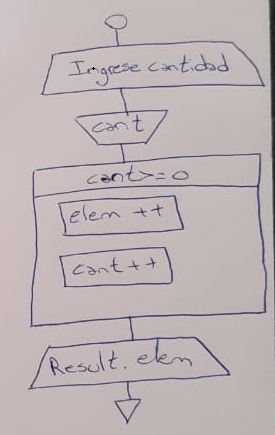 Ingrese cantidad
cant
cant>=0
elem ++
cant++
Result. elem